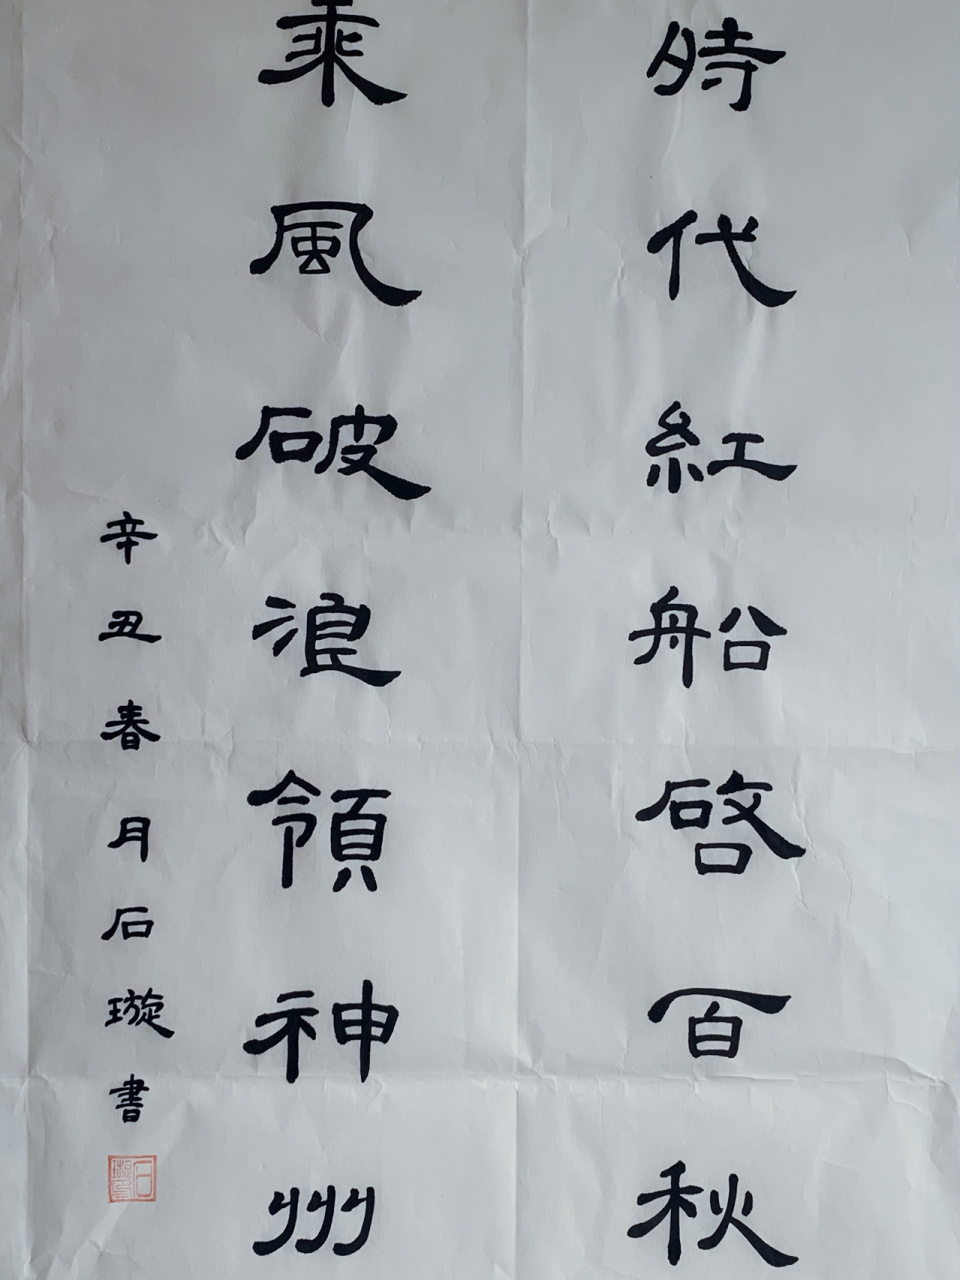 時代紅船啓百秋
乘風破浪領神州
辛丑春月石璇書